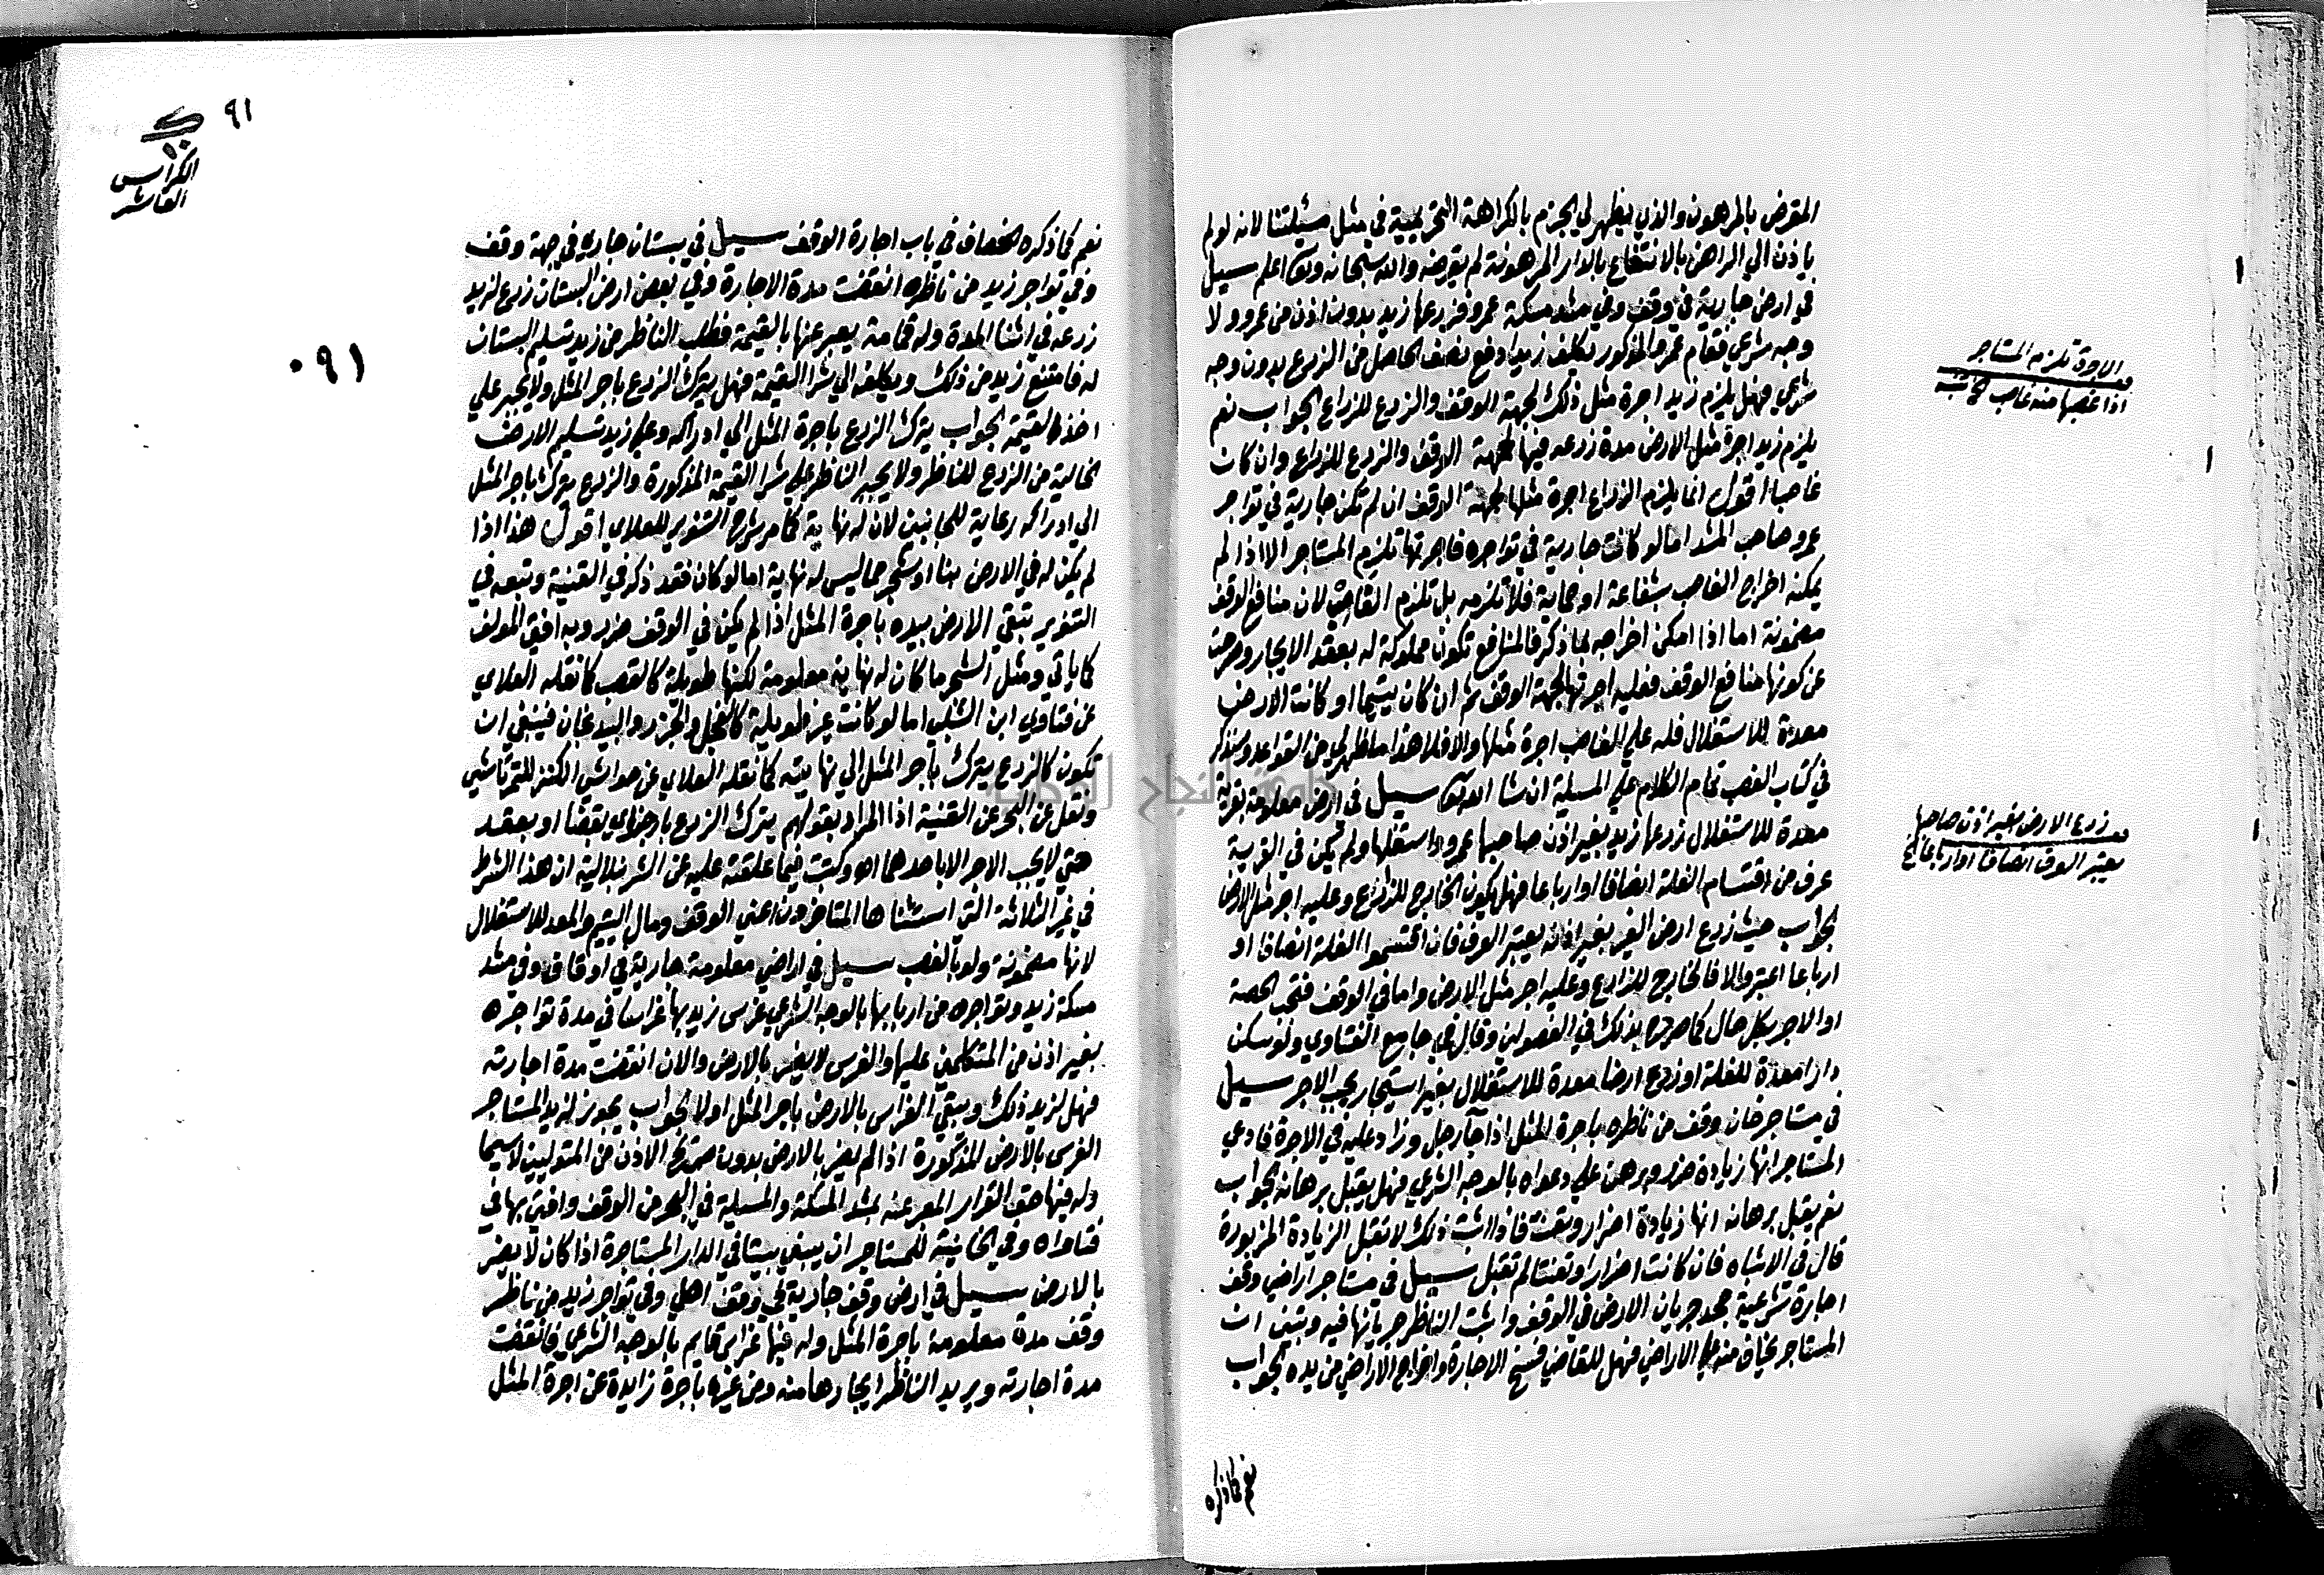 المقرض بالمرهون والذي يظهر لي الجزم بالكراهة التحريمية في مثل مسئلتنا لانه لو لم
ياذن الي الراهن بالانتفاع بالدار المرهونة لم يقرضه والله سبحانه وتعا اعلم سيل
في ارض جارية في وقف وفي مشد مسكة عمرو فزرعها زيد بدون اذن من عمرو ولا
وجه شرعي فقام عمرو المذكور يكلف زيدا دفع نصف الحاصل من الزرع بدون وجه
شرعي فهل يلزم زيد اجرة مثل ذلك لجهة الوقف والزرع للزراع الجواب نعم
يلزم زيد اجرة مثل الارض مدة زرعه فيها لجهة الوقف والزرع للزراع وان كان
غاصبا اقول انما يلزم الزراع اجرة مثلها لجهة الوقف ان لم تكن جارية في تواجر
عمرو صاحب المشد اما لو كانت جارية في تواجره فاجرتها تلزم المستاجر الا اذا لم
يمكنه اخراج الغاصب بشفاعة او حماية فلا تلزمه بل تلزم الغاصب لان منافع الوقف
مضمونة اما اذا امكن اخراجه بما ذكر فالمنافع تكون مملوكة له بعقد الايجار وخرجت
عن كونها منافع الوقف فعليه اجرتها لجهة الوقف ثم ان كان يتيما او كانت الارض
معدة للاستغلال فله علي الغاصب اجرة مثلها والا فلا هذا ما ظهر لي من القواعد وسنذكر
في كتاب الغصب تمام الكلام علي المسئلة ان شا الله تعا سيل في ارض معلومة بقرية
معدة للاستغلال زرعها زيد بغير اذن صاحبها عمرو واستغلها ولم يكن في القرية
عرف من اقتسام الغلة انصافا او ارباعا فهل يكون الخارج للزارع وعليه اجر مثل الارض
الجواب حيث زرع ارض الغير بغير اذنه يعتبر العرف فان اقتسموا الغلة انصافا او
ارباعا اعتبر والا فالخارج للزارع وعليه اجر مثل الارض واما في الوقف فتجب الحصة
او الاجر بكل حال كما صرح بذلك في الفصولين وقال في جامع الفتاوي ولو سكن
دارا معدة للغلة او زرع ارضا معدة للاستغلال بغير استيجار يجب الاجر سيل
في مستاجر خان وقف من ناظره باجرة المثل اذا جا رجل وزاد عليه في الاجرة فادعي
المستاجر انها زيادة ضرر وبرهن علي دعواه بالوجه الشرعي فهل يقبل برهانه الجواب
نعم يقبل برهانه انها زيادة اضرار وتعنت فاذا اثبت ذلك لا تقبل الزيادة المزبورة
قال في الاشباه فان كانت اضرارا وتعنتا لم تقبل سيل في مستاجر اراضي وقف
اجارة شرعية جحد جريان الارض في الوقف واثبت الناظر جريانها فيه وتبين ان
المستاجر يخاف منه علي الاراضي فهل للقاضي فسخ الاجارة واخراج الاراضي من يده الجواب
نعم كما ذكره
الاجرة تلزم المستاجر
اذا غصبها منه غاصب
زرع الارض بغير اذن صاحبها
يعتبر العرف انصافا او ارباعا الخ
٩١
الكراس
العاشر
٠٩١
نعم كما ذكره الخصاف في باب اجارة الوقف سيل في بستان جاري في جهة وقف
وفي تواجر زيد من ناظره انقضت مدة الاجارة وفي بعض ارض البستان زرع لزيد
زرعه في اثنا المدة وله قمامة يعبر عنها بالقيمة فطلب الناظر من زيد تسليم البستان
له فامتنع زيد من ذلك ويكلفه الي شرا القيمة فهل يترك الزرع باجر المثل ولا يجبر علي
اخذ القيمة الجواب يترك الزرع باجرة المثل الي ادراكه وعلي زيد تسليم الارض
الخالية من الزرع للناظر ولا يجبر الناظر علي شرا القيمة المذكورة والزرع يترك باجر المثل
الي ادراكه رعاية للجانبين لان له نهاية كما مر شرح التنوير للعلاي اقول هذا اذا
لم يكن له في الارض بنا او شجر مما ليس له نهاية اما لو كان فقد ذكر في القنية وتبعه في
التنوير تبقي الارض بيده باجرة المثل اذا لم يكن في الوقف ضرر وبه افتي المولف
كما ياتي ومثل الشجر ما كان له نهاية معلومة لكنها طويلة كالقصب كما نقله العلاي
عن فتاوي ابن الشلبي اما لو كانت غير طويلة كالفجل والجزر والبيدنجان فينبغي ان
تكون كالزرع يترك باجر المثل الي نهايته كما نقله العلاي عن حواشي الكنز للتمرتاشي
ونقل عن البحر عن القنية اذا المراد بقولهم يترك الزرع باجر اي بقضا او بعقد
حتي لا يجب الاجر الا باحدهما اه وكتبت فيما علقته عليه عن الشرنبلالية ان هذا الشرط
في غير الثلاثة التي استثناها المتاخرون اعني الوقف ومال اليتيم والمعد للاستغلال
لانها مضمونة ولو بالغصب سيل في اراضي معلومة جارية في اوقاف وفي مشد
مسكة زيد وتواجره من اربابها بالوجه الشرعي غرس زيد بها غراسا في مدة تواجره
بغير اذن من المتكلمين عليها والغرس لا يضر بالارض والان انقضت مدة اجارته
فهل لزيد ذلك ويبقي الغراس بالارض باجر المثل او لا الجواب يجوز لزيد المستاجر
الغرس بالارض المذكورة اذا لم يضر بالارض بدون صريح الاذن من المتوليين لا سيما
وله فيها حق القرار المعبر عنه بمشد المسكة والمسيلة في البحر من الوقف وافتي بها في
فتاواه وفي الخانية للمستاجر ان يبني بيتا في الدار المستاجرة اذا كان لا يضر
بالارض سيل في ارض وقف جارية في وقف اهلي وفي تواجر زيد من ناظر
وقف مدة معلومة باجرة المثل وله فيها غراس قايم بالوجه الشرعي فانقضت
مدة اجارته ويريد الناظر ايجارها منه ومن غيره باجرة زايدة عن اجرة المثل